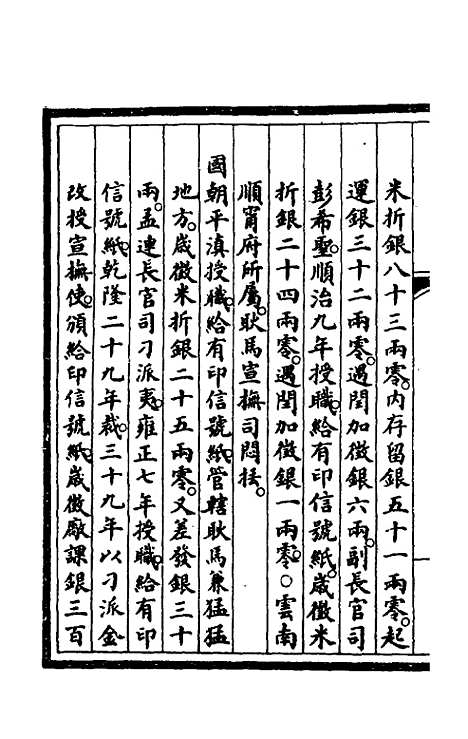 米折銀八十三兩零。內存留銀五十一兩零。起
運銀三十二兩零。遇閏加徵銀六兩。副長官司
彭希聖。順治九年授職。給有印信號紙。歲徵米
折銀二十四兩零。遇閏加徵銀一兩零。○雲南
順甯府所屬。耿馬宣撫司悶扺。
國朝平滇授職。給有印信號紙。管轄耿馬兼猛猛
地方。歲徵米折銀二十五兩零。又差發銀三十
兩。孟連長官司刁派夷。雍正七年授職。給有印
信號紙。乾隆二十九年裁。三十九年以刁派金
改授宣撫使。頒給印信號紙。歲徵廠課銀三百